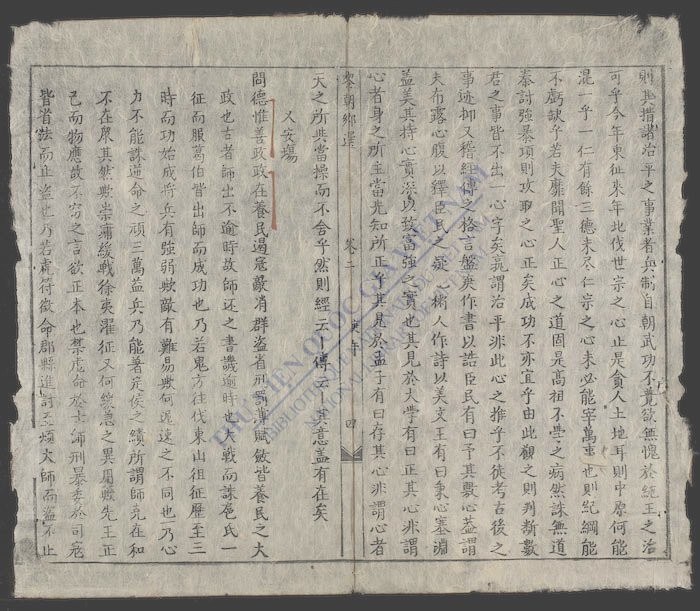 則其措諸治平之事業者與制自朝武功不竟欲無愧於純王之治
可乎今年東征來年北伐世宗之心止是貪人土地耳則中原何能
混一乎一仁有餘三德未尽仁宗之心未必能宰萬事也則紀綱能
不虧缺乎若夫靡聞聖人正心之道固是高祖不學之病然誅無道
秦討強暴項則攻取之心正矣成功不亦宜乎由此觀之則判断數
君之事皆不出一心字矣孰謂治平非此心之推乎不徒考古後之
事迹抑又稽經傳之格言盤庚作書以誥臣民有曰予其敷心蓋謂
夫布露心腹以釋臣民之疑心衛人作詩以美文王有曰秉心塞淵
蓋美其持心實深以致富強之實也其見於大學有曰正其心非謂
心者身之所主當先知所正乎其見於孟子有曰存其心非謂心者
黎朝鄉選 卷二 庚午 四
天之所與當操而不舍乎然則經云傳云其意盖有在矣
乂安場
問德惟善政政在養民遏寇敵消群盗省刑罰薄賦斂皆養民之大
政也古者師出不逾時故師还之書譏逾時也夫戰而誅扈氏一
征而服葛伯皆出師而成功也乃若鬼方往伐東山徂征歷至三
時而功始成将兵有強弱歟敵有難易歟何泥速之不同也一乃心
力不能誅逆命之頑三萬益兵乃能著定侯之績所謂師克在和
不在衆其然歟崇墉緩戰徐夷濯征又何緩急之異用歟先王正
己而物應故不穷之言欲正本也禁虎命於士師刑暴委於司寇
皆省法而止盗也乃若虎符徵命郡縣進討玉煩大師而盗不止